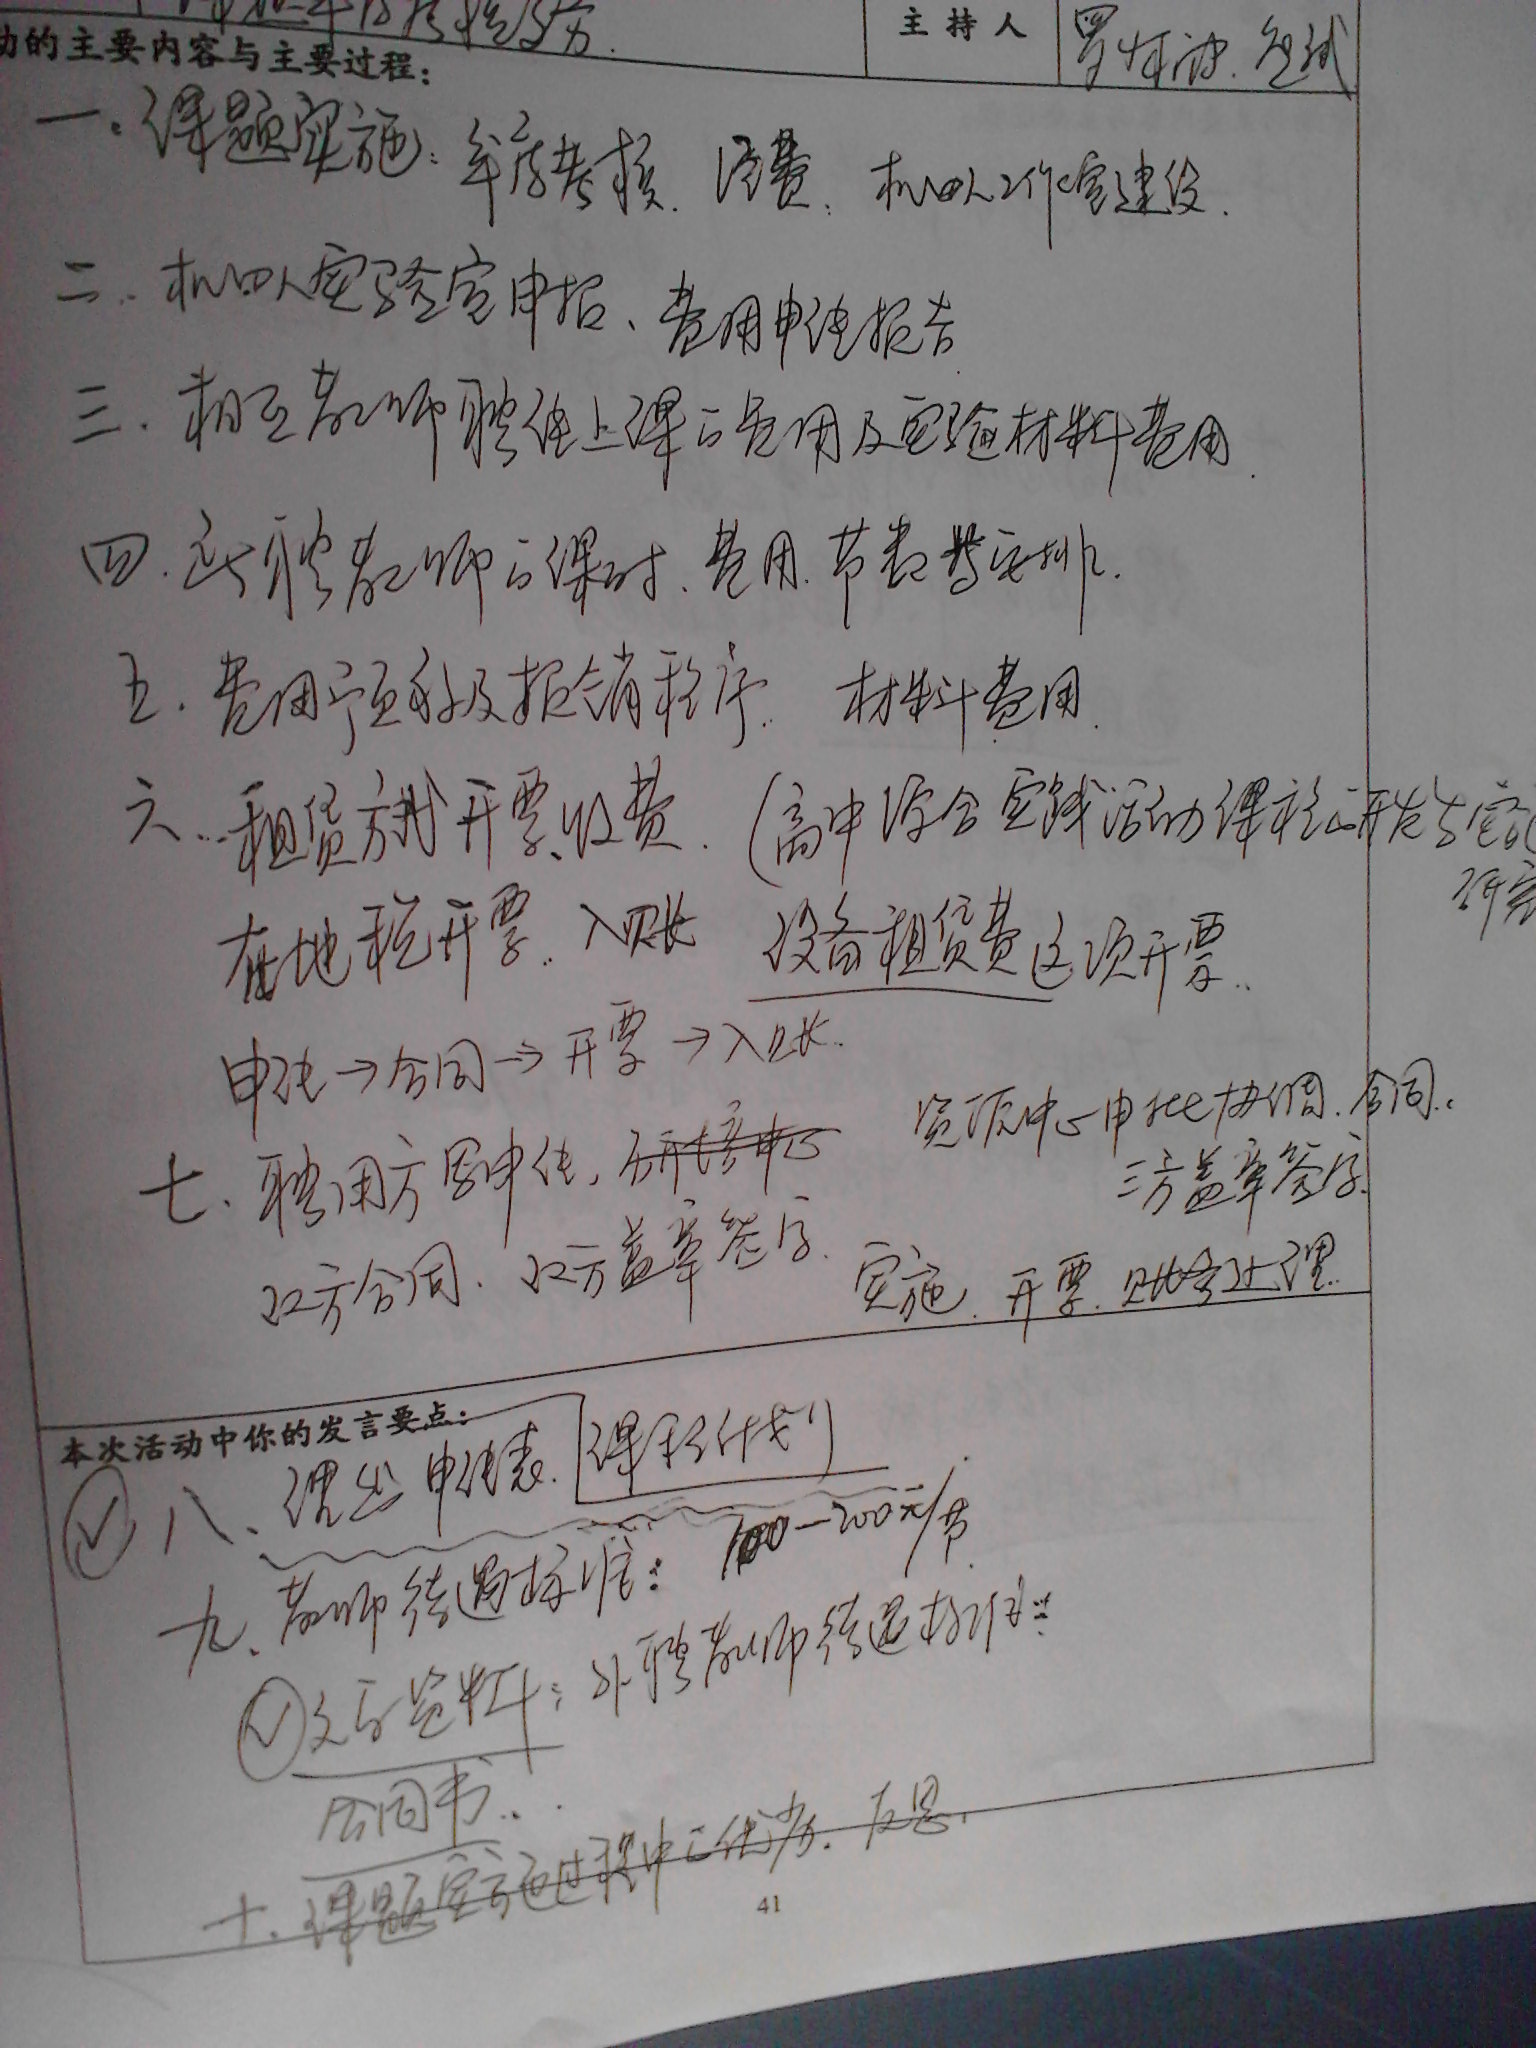 主持人
动的主要内容与主要过程：
一、课题实施：年度考核、经费、机四人工作室建设.
二、机四人实验室申报、费用申请报告
三、相互教师聘任上课的费用及实验材料费用.
四、近聘教师的课时、费用、节数等安排.
五、费用预移及报销程序. 材料费用.
六、租赁方式开票、收费. (高中综合实践活动课程研发与实施
研究
在地税开票、入账 设备租赁费这项开票.
申请→合同→开票→入账.
七、聘用方写申请, 研培中心 资源中心申批协调、合同.
三方盖章签字.
双方合同、双方盖章签字.
实施、开票、账务处理.
本次活动中你的发言要点：
八、课业申请表. 课程计划
九、教师待遇标准：100—200元/节
文后资料：外聘教师待遇标准：
合同书..
十、课题实施过程中的优劣、反思.
41